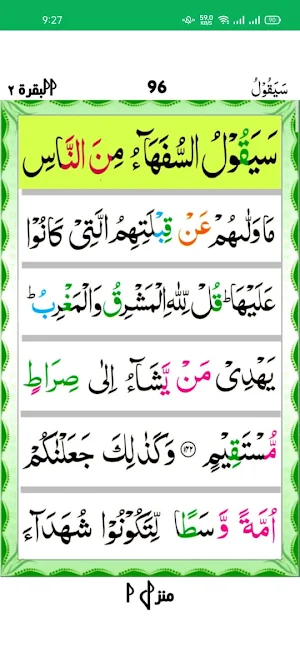 9:27 59.0 KB/S 90
البقرة ٢ 96 سَيَقُوْلُ
سَيَقُوْلُ السُّفَهَآءُ مِنَ النَّاسِ
مَا وَلّٰىهُمْ عَنْ قِبْلَتِهِمُ الَّتِيْ كَانُوْا
عَلَيْهَا ؕ قُلْ لِّلّٰهِ الْمَشْرِقُ وَالْمَغْرِبُ ؕ
يَهْدِيْ مَنْ يَّشَآءُ اِلٰى صِرَاطٍ
مُّسْتَقِيْمٍ ﴿۱۴۲﴾ وَكَذٰلِكَ جَعَلْنٰكُمْ
اُمَّةً وَّسَطًا لِّتَكُوْنُوْا شُهَدَآءَ
منزل ۱